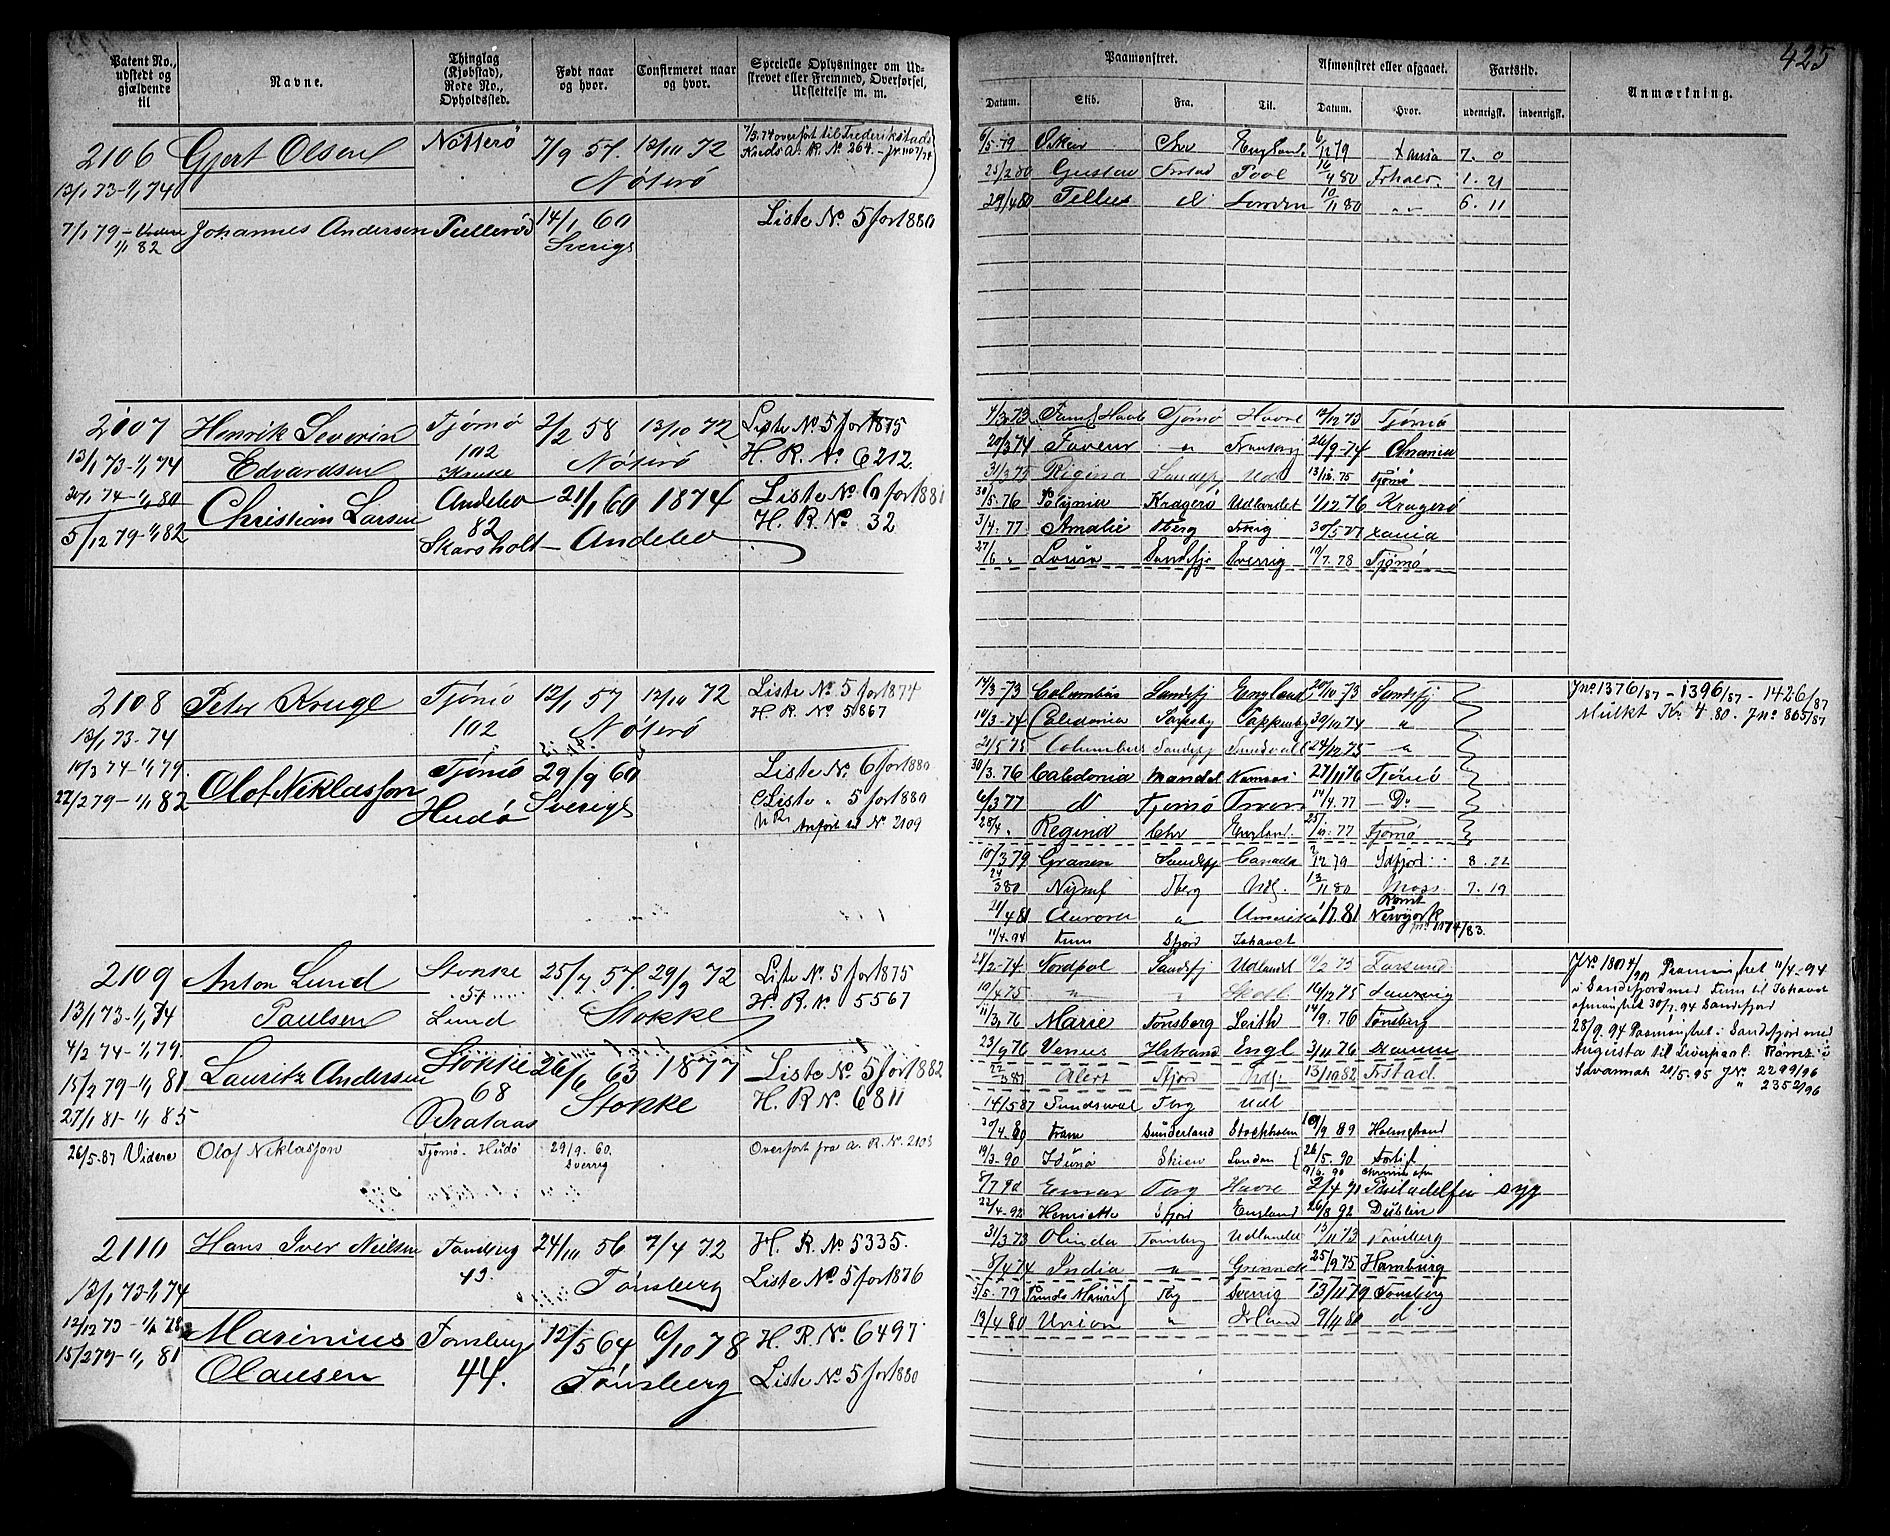 425
Patent No., udstedt og gjældende til
Navne.
Thinglag (Kjøbstad), Rode No., Opholdssted.
Født naar og hvor.
Confirmeret naar og hvor.
Specielle Oplysninger om Udstrevet eller Fremmed, Overførsel, Udslettelse m. m.
Paamønstret.
Datum. Skib. Fra. Til.
Afmønstret eller afgaaet.
Datum. Hvor.
Fartstid.
udenrigsk. indenrigsk.
Anmærkning.
2106 Gjert Olsen Nötterö 7/9 57. 13/10 72
Nöterö
13/1 73-1/1 74
7/3 74 overført til Frederikstads
Kreds a. R. No 264.
7/1 79 - Videre Johannes Andersen 14/1 60 Liste No 5 for 1880
1/1 82 Sverige
6/5-79 England 7. 0
25/2 80 Gustav Frstad 80 1. 21
29/4 80 Tellus d London 10/11 80 6. 11
2107 Henrik Severin Tjömö 2/2 58 13/10 72 Liste No 5 for 1875
Edvardsen 102 Nöterö H. R. No 6212.
13/1 73-1/1 74
20/1 74-1/1 80 Christian Larsen Andebo 21/1 60 1874 Liste No 6 for 1881
5/12 79-1/1 82 82 H. R. No 32
Skarsholt - Andebo
4/3 73 Tjömö Havre 12/12 73 Tjömö
20/3 74 Faveur 26/9-74
31/3 75 Regina Sandefj Udl 13/12. 75 Tjömö
30/5. 76 Kragerö Udlandet 1/12 76 Kragerö
3/4. 77 Amalie Tberg 30/5-77 Xania
27/6 " Sandefj Sverrig 10/7. 78 Tjömö
2108 Peter Kruge Tjömö 12/1 57 12/10 72 Liste No 5 for 1874
102 Nöterö H. R. No 5867
13/1 73-74
10/3 74-1/1 79.
22/2 79-1/1 82 Olof Niklasson Tjömö 29/9 60 Liste No 6 for 1880
Hudö Sverige Liste " 5 for 1880
Anfört til No 2109
14/3-73 Columbus Sandefj England 20/10-73 Sandefj
14/3-74 Caledonia 30/10 74 "
21/5 75 Columbus Sandefj Sundsvall 24/10 75 "
30/3. 76 Caledonia Mandal 27/11 76 Tjömö
6/3 77 d Tjömö 14/4. 77 - Do -
28/4 " Regina Chr England. 25/10. 77 Tjömö
10/3 79 Granen Sandefj Canada 12 79 8. 22
24/3 80 Nymf Tberg Udl. 13/11 80 Moss 7. 19
21/4 81 Aurora " Amerika 1/7. 81 Römt Newyork
11/4-94 Sfjord Ishavet
Jno 1376/87 - 1396/87 - 1426/87
Mulkt Kr 4.80. Jno 865/87
2109 Anton Lund Stokke 25/7 57. 29/9 72 Liste No 5 for 1875
Paulsen 57 Lund Stokke H. R. No 5567
13/1 73-1/1 74
4/2 74-1/1 79.
15/2 79-1/1 81 Lauritz Andersen Stokke 26/6 63 1877 Liste No 5 for 1882
27/1 81-1/1 85 68 Stokke H. R No 6811
Brataas
26/5-87 Videre Olof Niklasson Tjömö. Hudö 29/9. 60. Sverrig Overført fra a. R. No. 2108
24/2-74 Nordpol Sandefj Udlandet Farsund
10/4 75 " " 16/12 75 Laurvig
11/3. 76 Marie Tonsberg Leith 14/9. 76 Tönsberg
23/9 76 Venus Hstrand Engl 3/11 76
22/3 81 Alert Sfjord Udl 13/10 82 Frstad
14/5 87 Sundsval Tbrg Udl
30/4. 89 Fram Sunderland Stockholm 10/9 89 Holmestrand
19/3-90 Iduna Skien London 26/5. 90
8/7 90 Einar Tbrg Havre 2/4 91 Philadelfia syg
22/4-92 Henriette Sfjord England 26/8 92 Dublin
Paamönstret 11/4-94
i Sandefjord med til Ishavet
afmönstret 30/7 94 Sandefjord
28/9. 94 Paamönstret i Sandefjord med
Augusta til Liverpool. Römt i
Savannah 21/5. 95 JNo 2299/96
" 2352/96
2110 Hans Iver Nielsen Tonsberg 24/10 56 7/4 72 H. R. No 5335.
43. Tönsberg Liste No 5 for 1876
13/1 73-1/1 74
12/12 73-1/1 78
15/2 79-1/1 81 Marinius Tonsberg 12/5 64 6/10 78 H. R. No. 6497
Olausen 44. Tönsberg Liste No 5 for 1880
31/3 73 Olinda Tonsberg Udlandet 13/11 73 Tönsberg
8/4 74 India " 25/9 75 Hamburg
3/5. 79 Tbg Sverrig 13/11 79 Tonsberg
13/4 80 Union " Irland 9/11 80 d